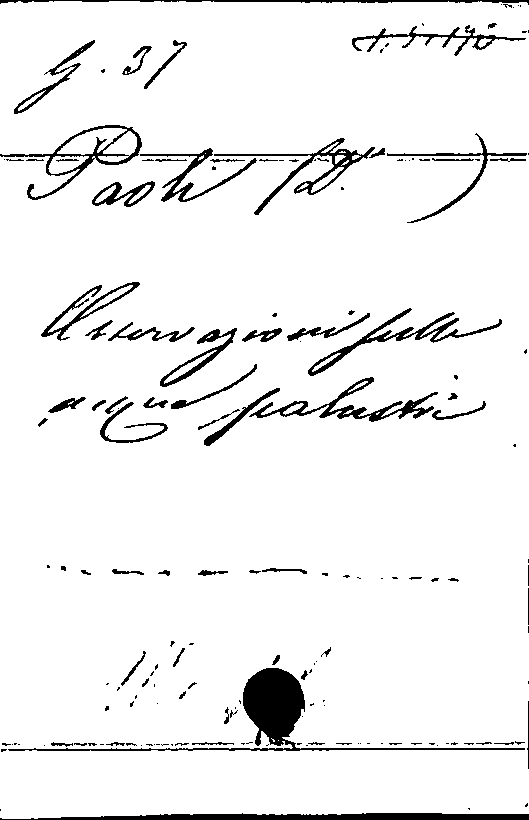 G. 37
Paoli (D.r )
Osservazioni sulle
acque palustri